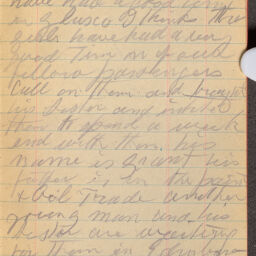 have had a good time
in Glusco I think the
girls have had a very
good Time on of our
fellow passengers
Call on them and brought
his sister and invited
them to spend a week
end with them. his
name is Grant his
father is in the paint
& oil Trade another
young man and his
sister are
for them in Edinburg